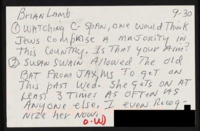 Brian Lamb 9-30
① Watching C-Span, one would think
Jews comprise a majority in
this country. Is that your aim?
② Susan Swain allowed the old
bat from JAX, MS to get on
this past Wed. She gets on at
least 3 times as often as
anyone else. I even recog-
nize her now.